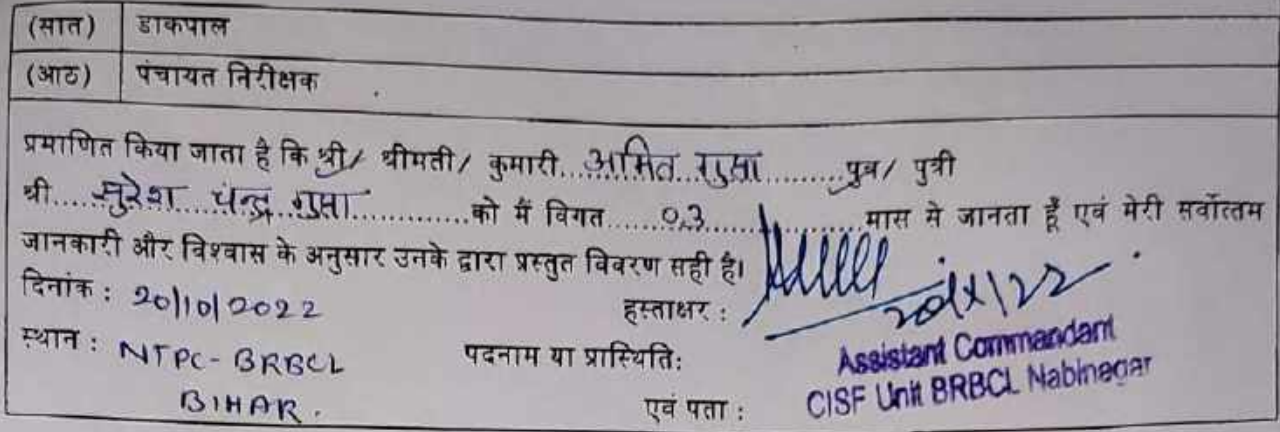 (सात) डाकपाल
(आठ) पंचायत निरीक्षक
प्रमाणित किया जाता है कि श्री/ श्रीमती/ कुमारी...अमित गुप्ता.........पुत्र/ पुत्री
श्री.....सुरेश चन्द्र गुप्ता.............को मैं विगत.......03..................मास से जानता हूँ एवं मेरी सर्वोत्तम
जानकारी और विश्वास के अनुसार उनके द्वारा प्रस्तुत विवरण सही है।
दिनांक : 20/10/2022 हस्ताक्षर : 20/X/22
स्थान : NTPC-BRBCL पदनाम या प्रास्थिति: Assistant Commandant
BIHAR. एवं पता : CISF Unit BRBCL Nabinagar